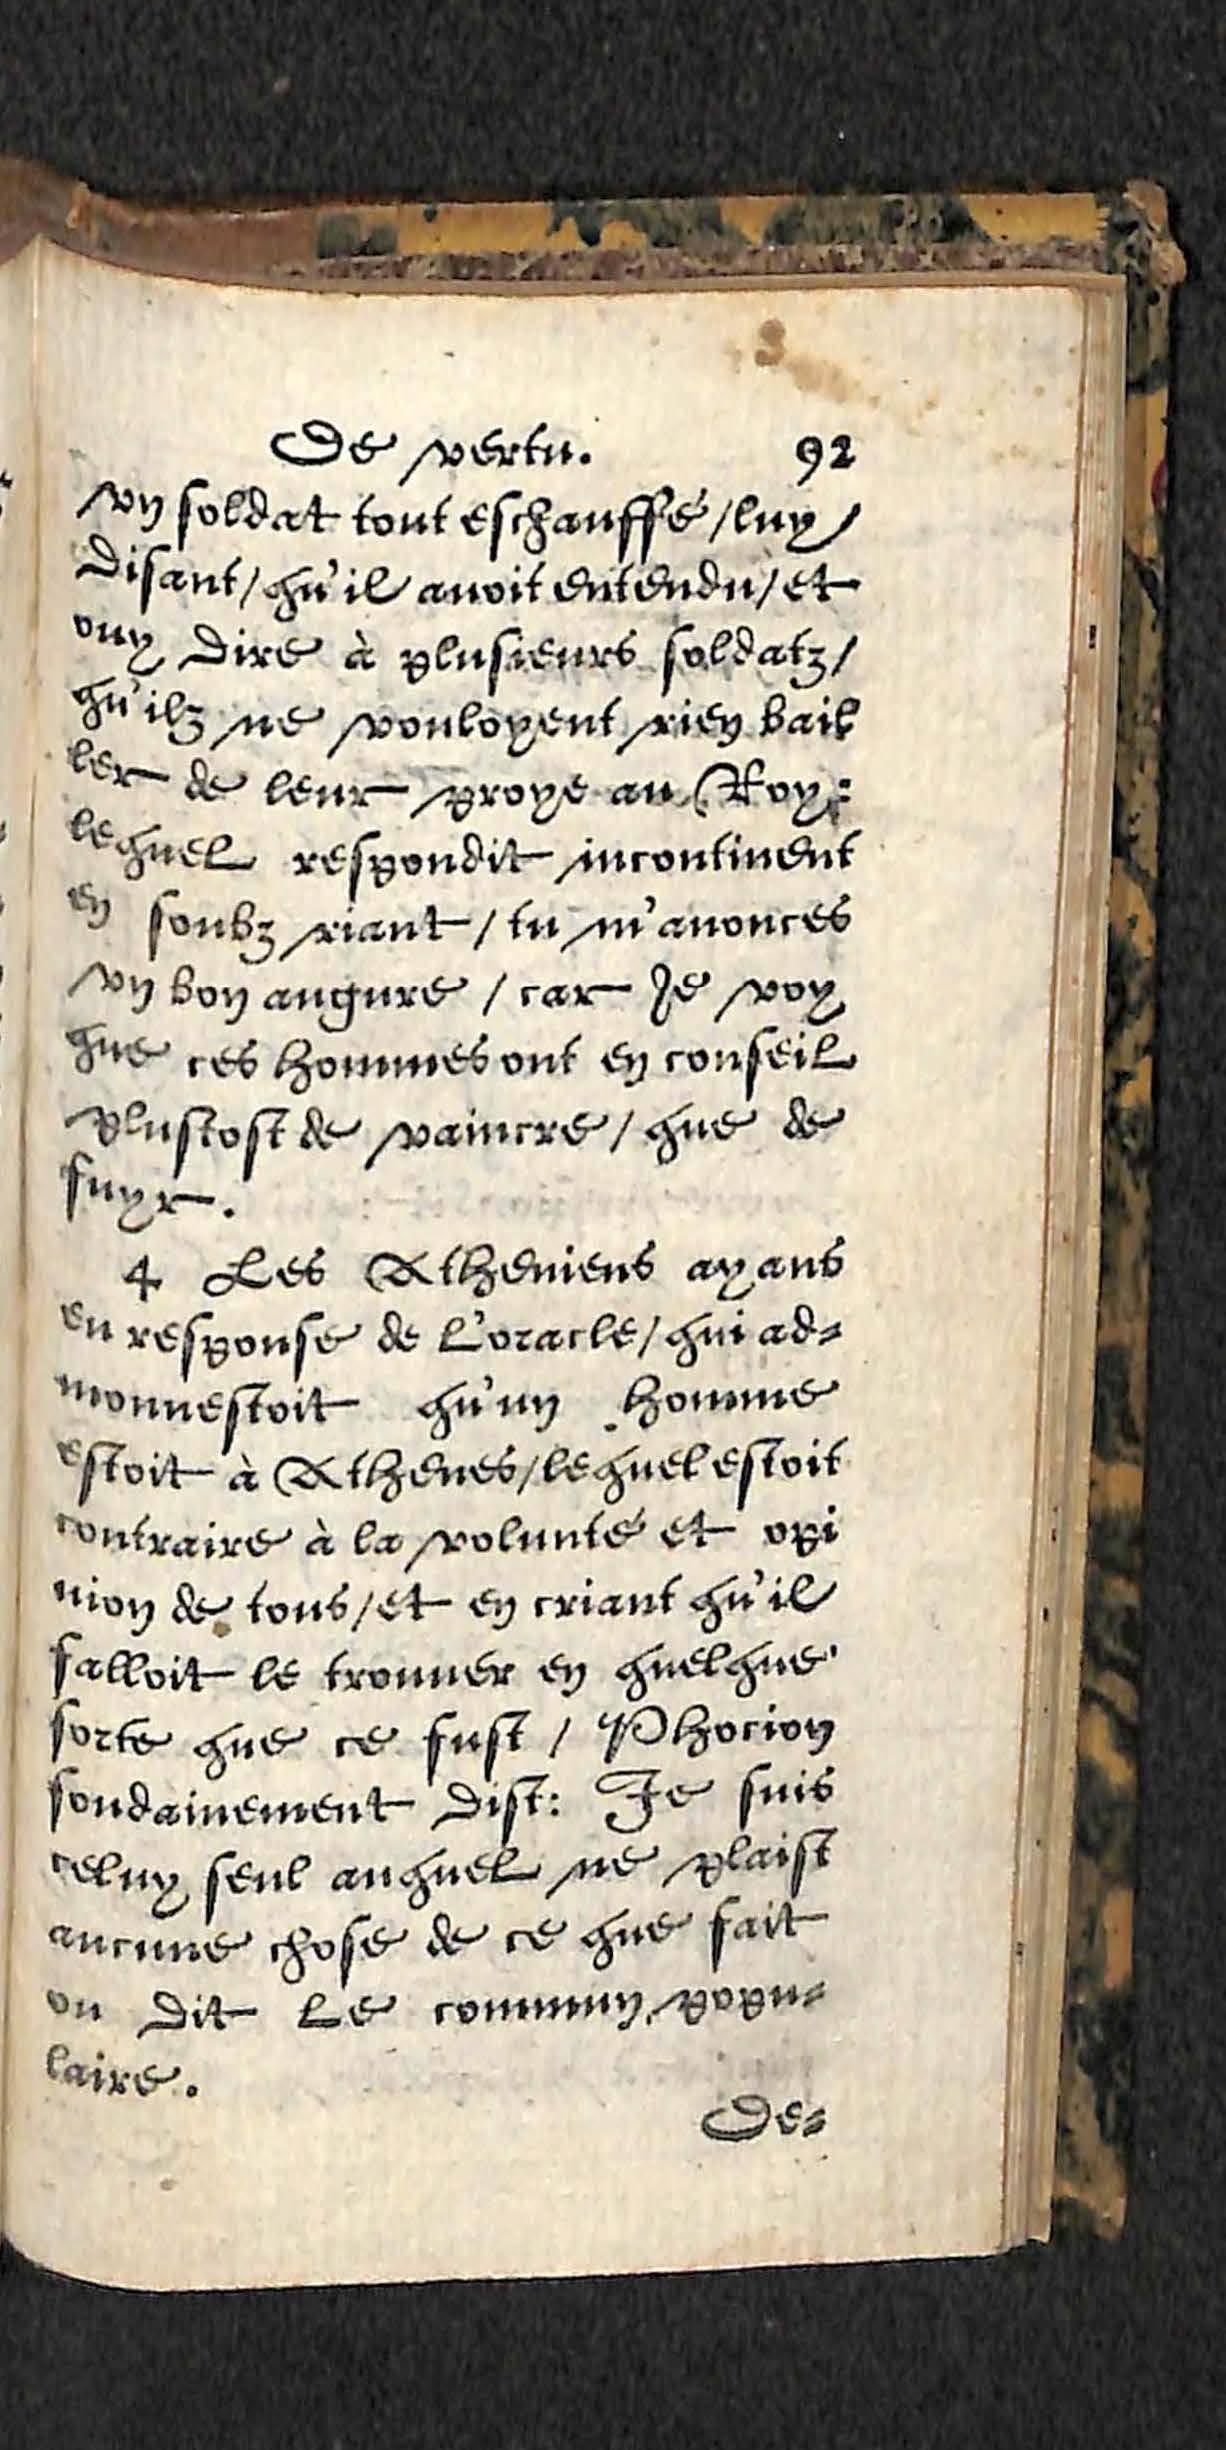 De vertu. 92
vn soldat tout eschauffé/luy
disant/qu'il auoit entendu/et
ouy dire à plusieurs soldatz/
qu'ilz ne vouloyent rien bail
ler de leur proye au Roy:
lequel respondit incontinent
en soubz riant/tu m'anonces
vn bon augure/car Je voy
que ces hommes ont en conseil
plustost de vaincre/que de
fuyr.
4 Les Atheniens ayans
eu response de L'oracle/qui ad-
monnestoit qu'un homme
estoit à Athenes/lequel estoit
contraire à la volunté et opi
nion de tous/et en criant qu'il
falloit le trouuer en quelque
sorte que ce fust/Phocion
soudainement dist: Je suis
celuy seul auquel ne plaist
aucune chose de ce que fait
ou dit Le commun popu-
laire.
De-